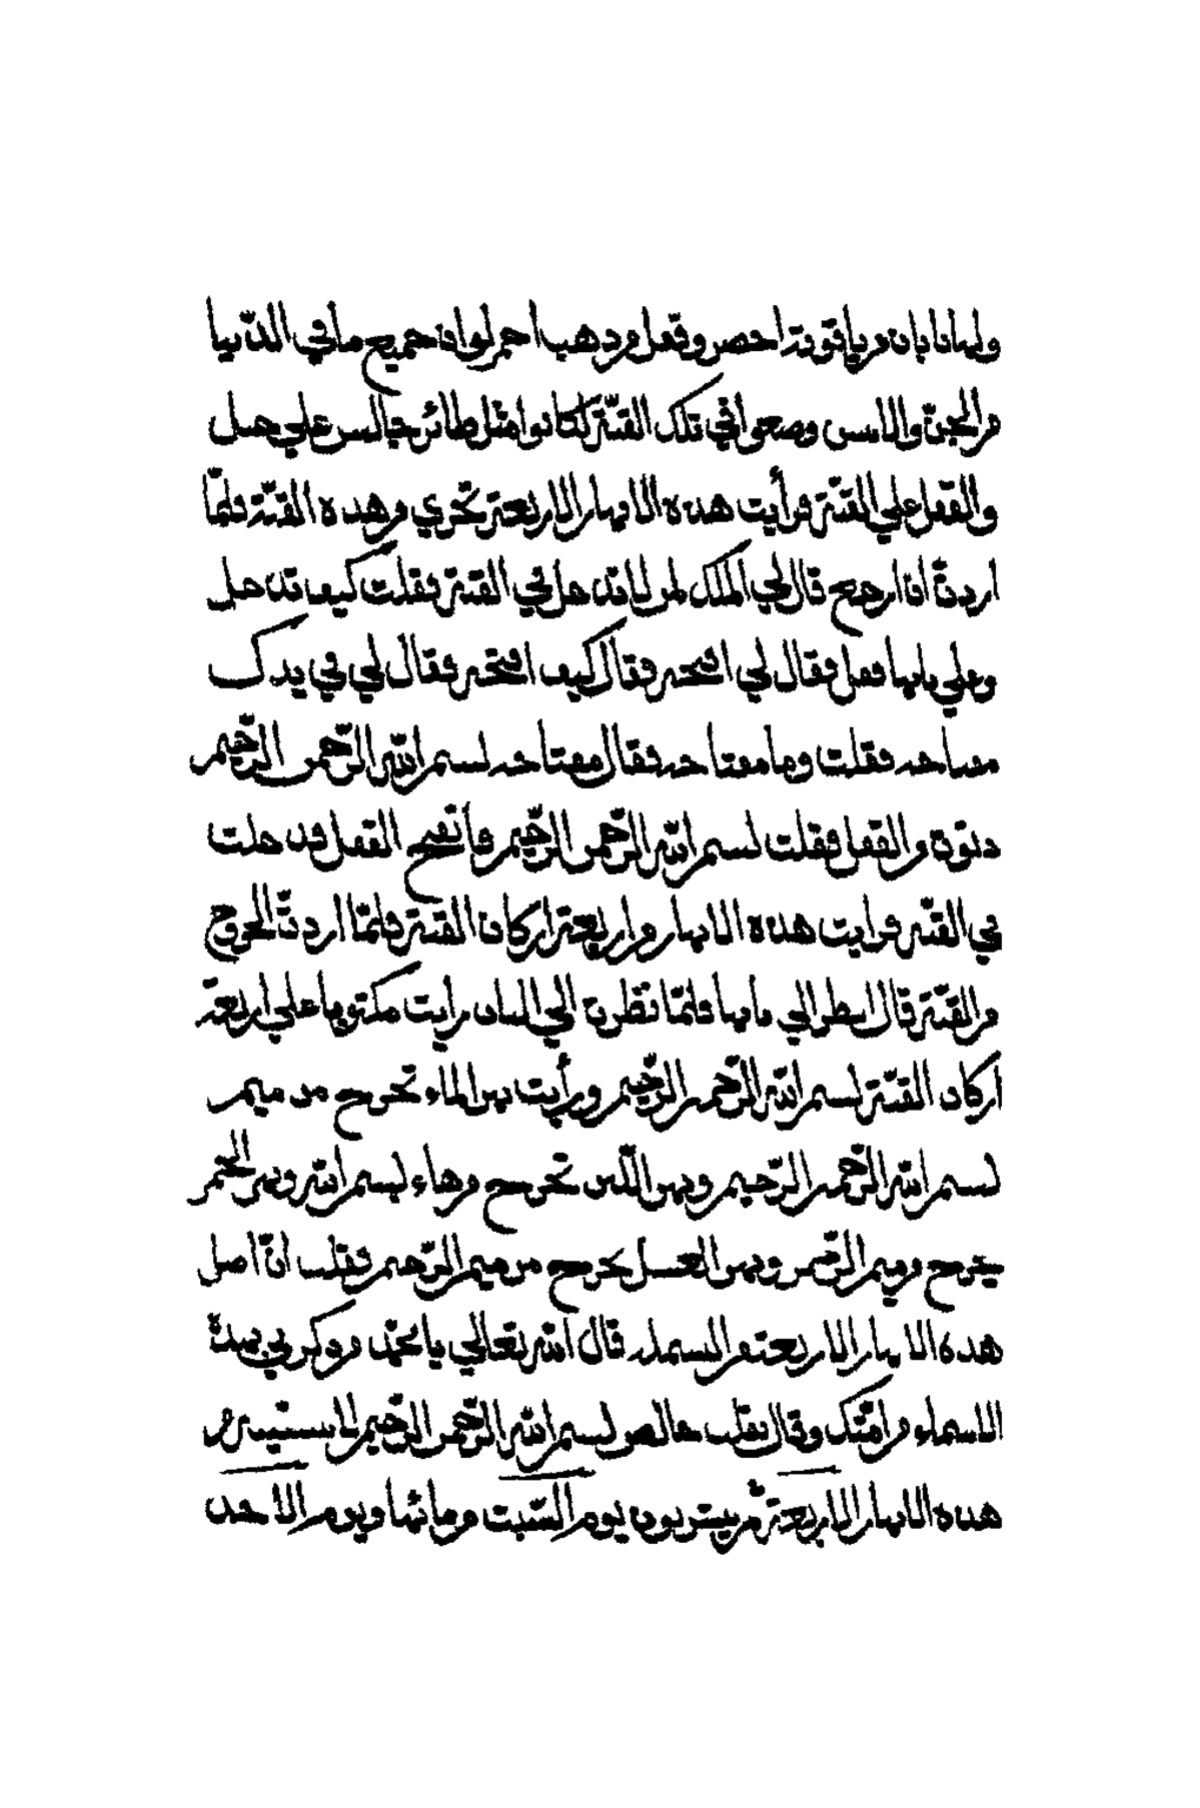 ولها بابان من ياقوتة اخضر وقفل من ذهب احمر لو ان جميع ما في الدنيا
من الجنّ والانس وضعوا في تلك القبّة لكانوا مثل طائر جالس على جبل
والقفل على القبّة فرأيت هذه الانهار الاربعة تجري من هذه القبّة فلمّا
اردتّ ان ارجع قال لي الملك لم لا تدخل في القبّة فقلت كيف تدخل
وعلى بابها قفل فقال لي افتحه فقال كيف افتحه فقال لي في يدك
مفتاحه فقلت وما مفتاحه فقال مفتاحه بسم الله الرّحمن الرّحيم
دنوت من القفل فقلت بسم الله الرّحمن الرّحيم فأنفتح القفل فدخلت
في القبّه فرايت هذه الانهار من اربعة اركان القبّة فلمّا اردتّ الخروج
من القبّة قال انظر الي بابها فلمّا نظرت الي الباب رأيت مكتوبا على اربعة
اركان القبّة بسم الله الرّحمن الرّحيم ورأيت نهر الماء تخرج من ميم
بسم الله الرّحمن الرّحيم ونهر اللّبن تخرج من هاء بسم الله ونهر الخمر
يخرج من ميم الرّحمن ونهر العسل يخرج من ميم الرّحيم فقلت انّ اصل
هذه الانهار الاربعة من البسملة قال الله تعالي يا محمّد من ذكرني بهذة
الاسماء من امّتك وقال بقلب خالص بسم الله الرّحمن الرّحيم لاسقيته من
هذه الانهار الاربعة ثم يشربون يوم السّبت من مائها ويوم الاحد